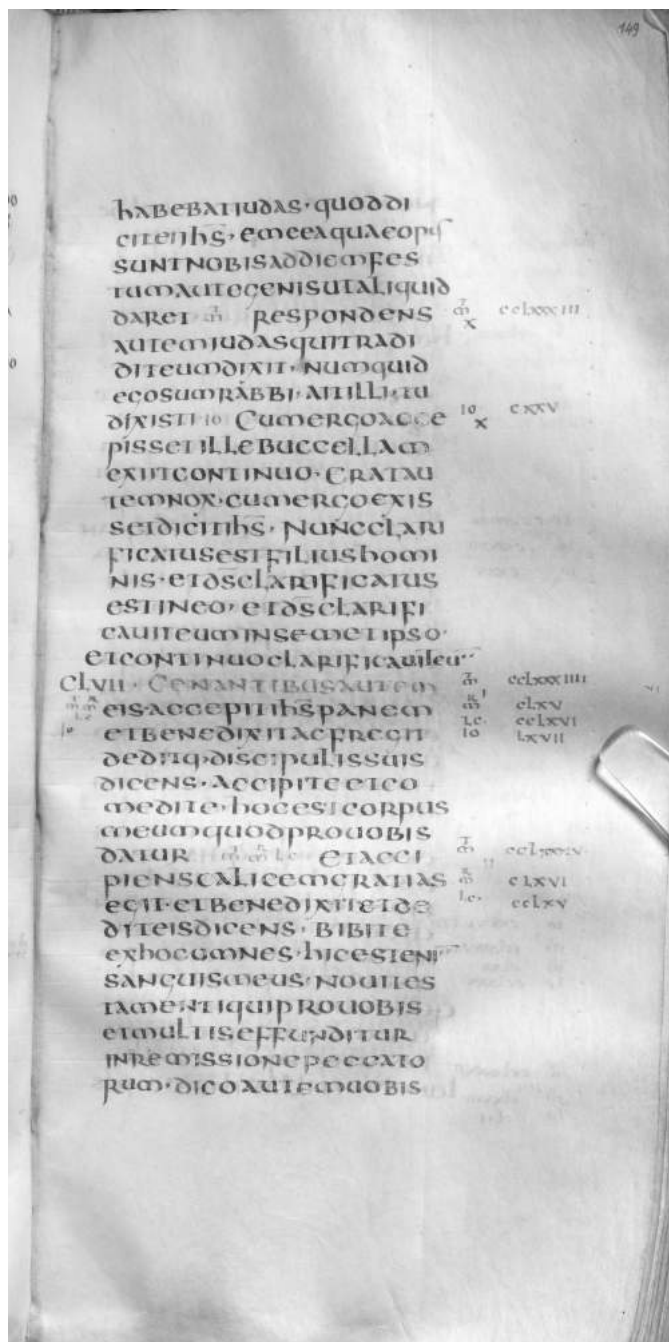 149
habebat iudas · quod di
cit ei ihs · eme ea quae opus
sunt nobis ad diem fes
tum aut egenis ut aliquid
daret respondens cclxxxiii
autem iudas qui tradi x
dit eum dixit · numquid
ego sum rabbi · ait illi · tu
dixisti io Cum ergo acce io cxxv
pisset ille buccellam x
exiit continuo · erat au
tem nox · cum ergo exis
set dicit ihs · nunc clari
ficatus est filius homi
nis · et ds clarificatus
est in eo · et ds clarifi
cavit eum in semetipso ·
et continuo clarificavit eu
CLVII · Cenantibus autem cclxxxiiii
eis · accepit ihs panem clxv
lc · cclxvi
io et benedixit ac fregit io lxvii
deditq · discipulis suis
dicens · accipite et co
medite · hoc est corpus
meum quod pro vobis
datur et acci
piens calicem gratias clxvi
egit · et benedixit et de lc · cclxv
dit eis dicens · bibite
ex hoc omnes · hic est eni
sanguis meus · novi tes
tamenti qui pro vobis
et multis effunditur
in remissione peccato
rum · dico autem vobis